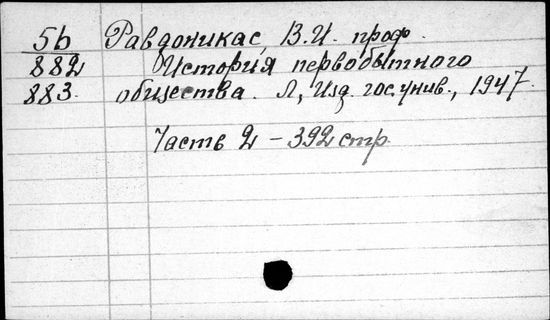 5b Равдоникас, В.И. проф.
882 История первобытного
883. общества. Л, Изд. гос. унив., 1947.
Часть 2 – 392 стр.